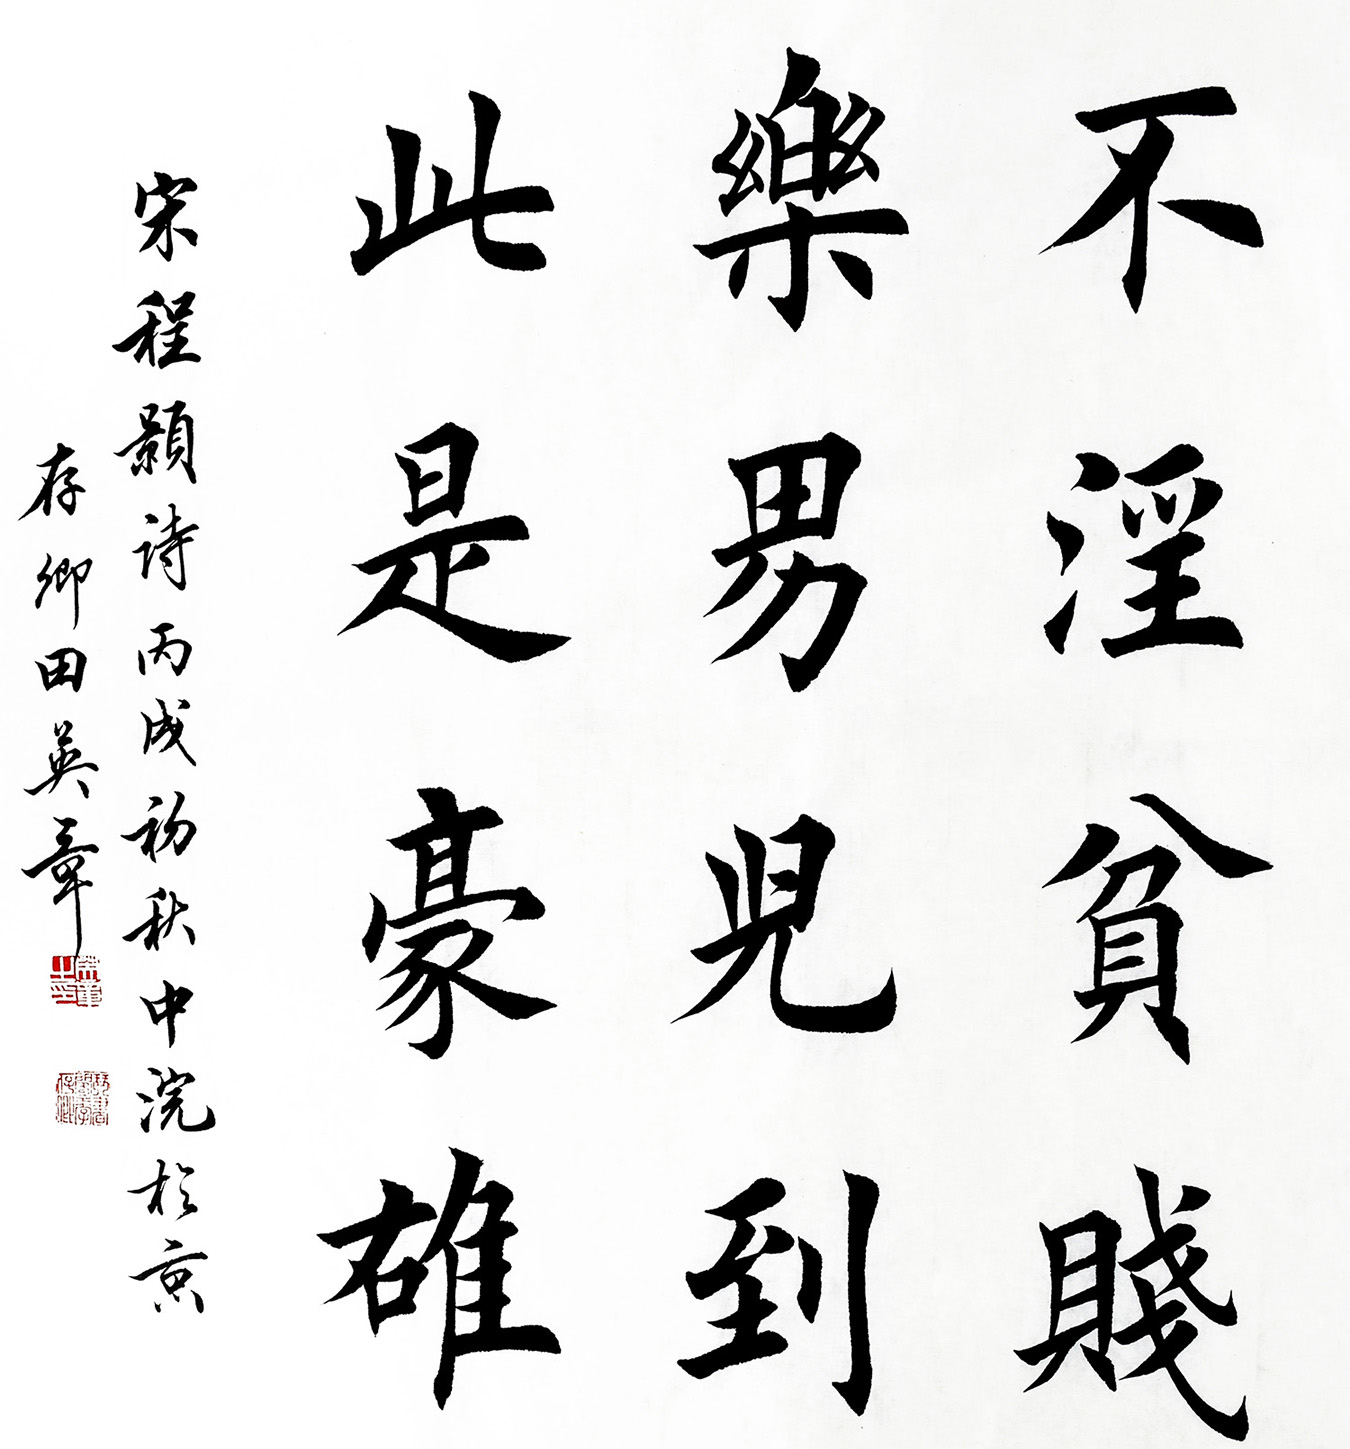 不淫貧賤
樂男兒到
此是豪雄
宋程顥詩丙戌初秋中浣於京
存卿田英章